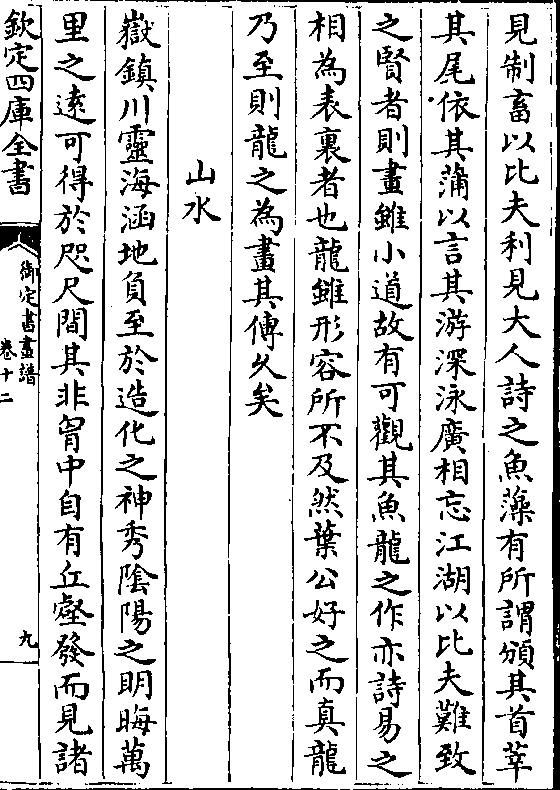 見制畜以比夫利見大人詩之魚藻有所謂頒其首莘
其尾依其蒲以言其游深泳廣相忘江湖以比夫難致
之賢者則畫雖小道故有可觀其魚龍之作亦詩易之
相為表裏者也龍雖形容所不及然葉公好之而真龍
乃至則龍之為畫其傳久矣
山水
嶽鎮川靈海涵地負至於造化之神秀陰陽之明晦萬
里之遠可得於咫尺間其非胷中自有丘壑發而見諸
欽定四庫全書
御定書畫譜
卷十二
九